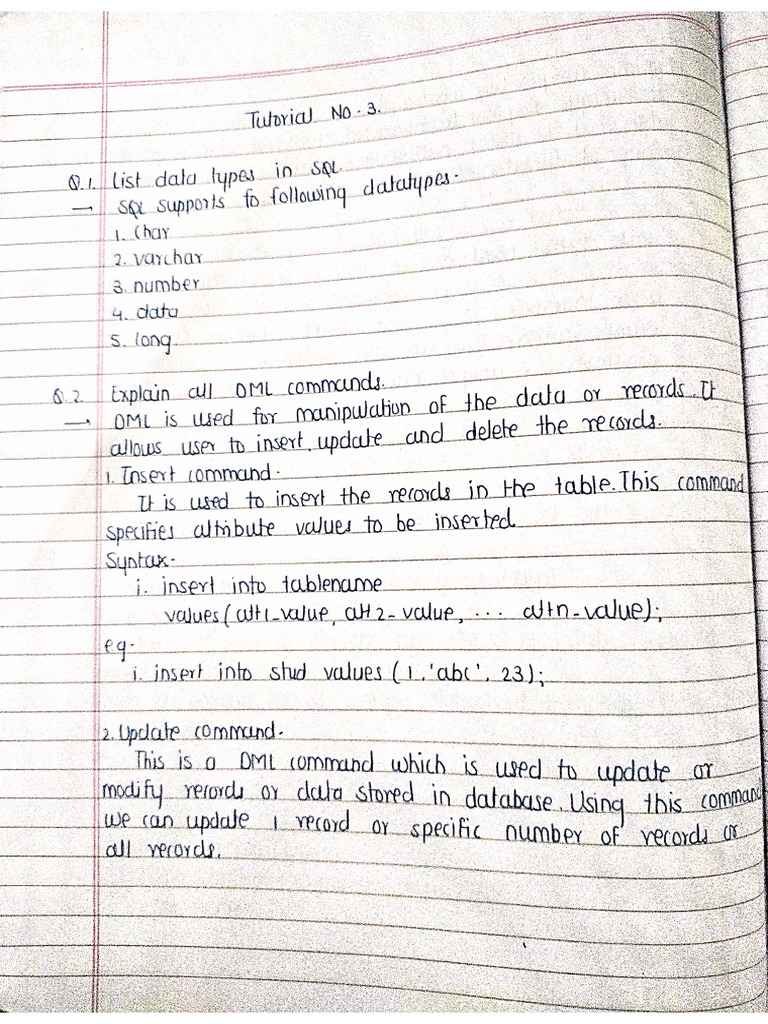 Tutorial No. 3.
Q.1. List data types in SQL
→ SQL supports to following datatypes.
1. Char
2. varchar
3. number
4. data
5. long
Q.2. Explain all DML commands.
→ DML is used for manipulation of the data or records. It
allows user to insert, update and delete the records.
1. Insert command.
It is used to insert the records in the table. This command
specifies attribute values to be inserted
Syntax.
i. insert into tablename
values(att1_value, att2_value, ... attn_value);
eg.
i. insert into stud values (1, 'abc', 23);
2. Update command.
This is a DML command which is used to update or
modify records or data stored in database. Using this command
we can update 1 record or specific number of records or
all records.